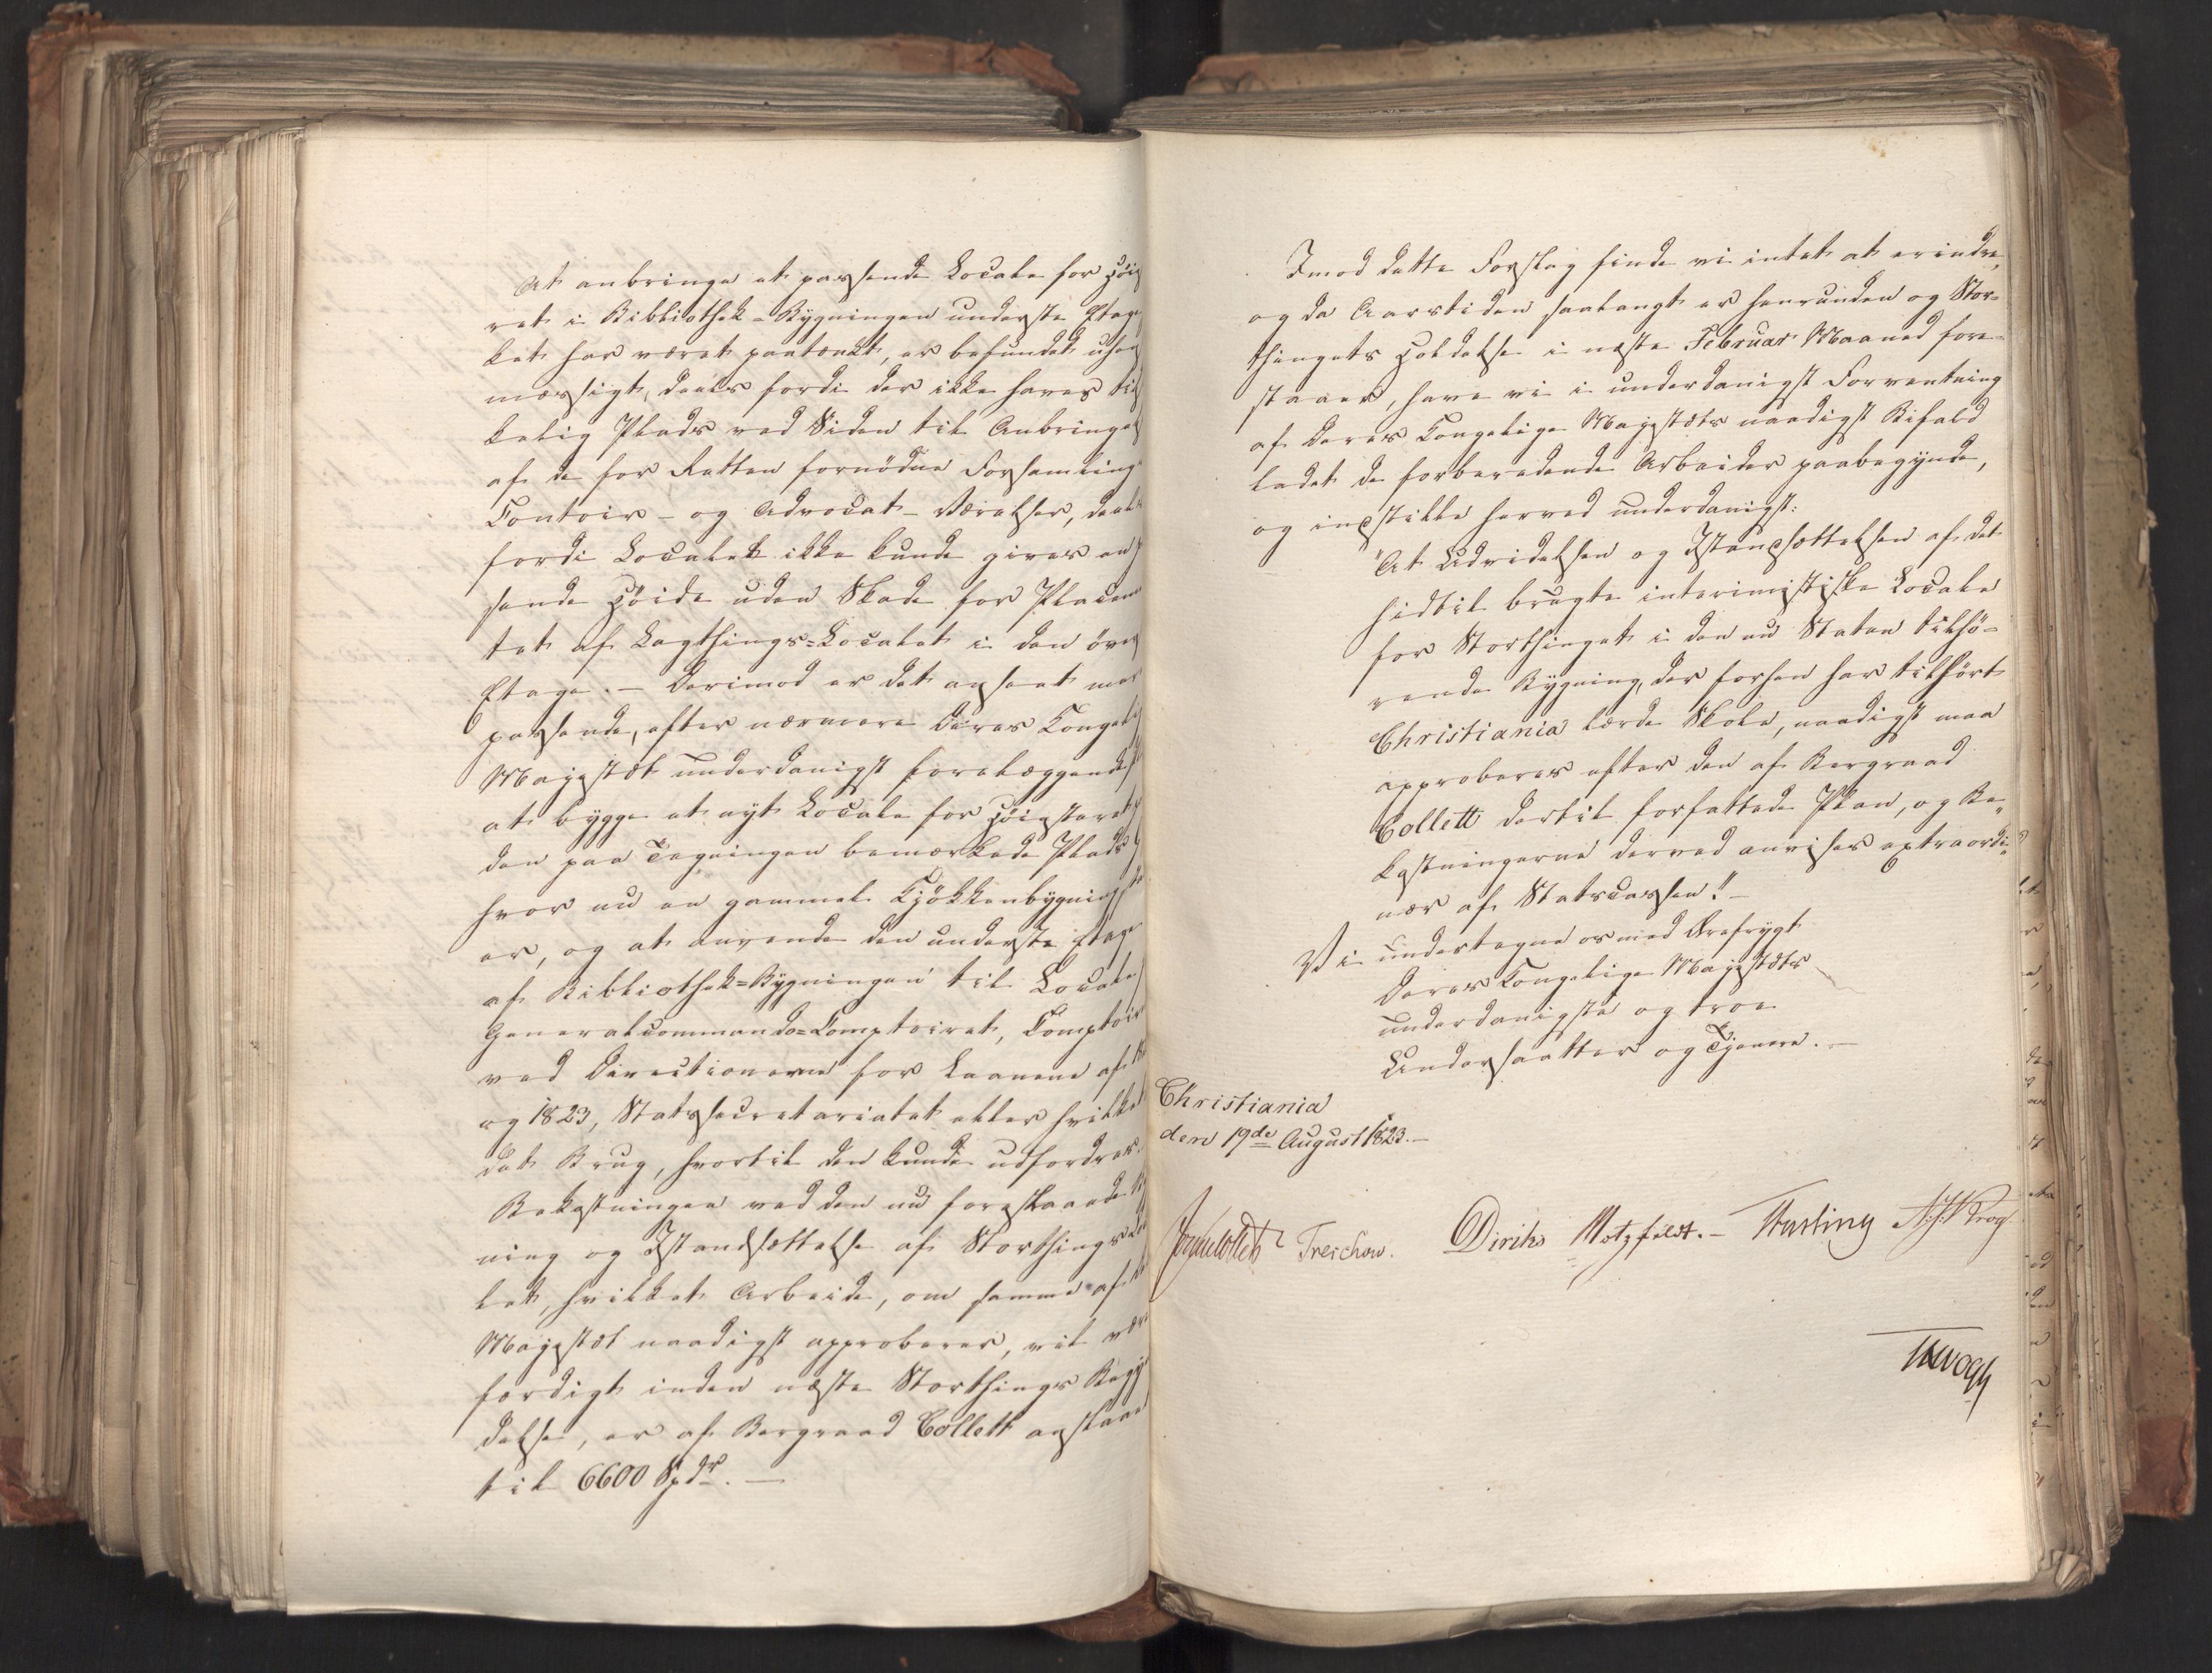 At anbringe et passende Locale for Höie
ret i Bibliothek-Bygningen underste Etage
ket har været paatænkt, er befundet uhen
mæssigt, deels fordi der ikke haves til
kelig Plads ved Siden til Anbringel
af de for Retten fornödne Forsamlings
Contoir- og Advocat-Værelser, deels
fordi Localet ikke kunde gives en
sende Höide uden Skade for Placeme
tet af Lagthings-Localet i den övre
Etage. — Derimod er det anseet mere
passende, efter nærmere Deres Kongelig
Majestæt underdanigst forelæggende
at bygge et nyt Locale for Höiesteret
den paa Tegningen bemærkede Plads
hvor nu en gammel Kjökkenbygning
er, og at anvende den underste Etage
af Bibliothek-Bygningen til Locale
Generalcommando-Comptoiret, Comptoir
ved Directionerne for Laanene af
og 1823, Statssecretariatet eller hvilket
det Brug, hvortil den kunde udfordres.
Bekostningen ved den nu forestaaende
ning og Istandsættelse af Storthings
let, hvilket Arbeide, om samme af
Majestæt naadigst approberes, vil være
færdigt inden næste Storthings Begyn
delse, er af Bergraad Collett anslaaet
til 6600 Spdr. —
Imod dette Forslag finde vi intet at erindre,
og da Aarstiden saalangt er henrunden og Stor-
thingets Holdelse i næste Februar Maaned fore-
staaer, have vi i underdanigst Forventning
af Deres Kongelige Majestæts naadigst Bifald
ladet de forberedende Arbeider paabegynde,
og indstille herved underdanigst:
"At Udvidelsen og Istandsættelsen af det
hidtil brugte interimistiske Locale
for Storthinget i den nu Staten tilhö-
rende Bygning, der forhen har tilhört
Christiania lærde Skole, naadigst maa
approberes efter den af Bergraad
Collett dertil forfattede Plan, og Be-
kostningerne derved anvises extraordi-
nær af Statscassen." —
Vi undertegne os med Ærefrygt
Deres Kongelige Majestæts
underdanigste og troe
Undersaatter og Tjenere. —
Christiania
den 19de August 1823. —
Jonas Collett Treschow. Diriks Motzfeldt. — Fasting